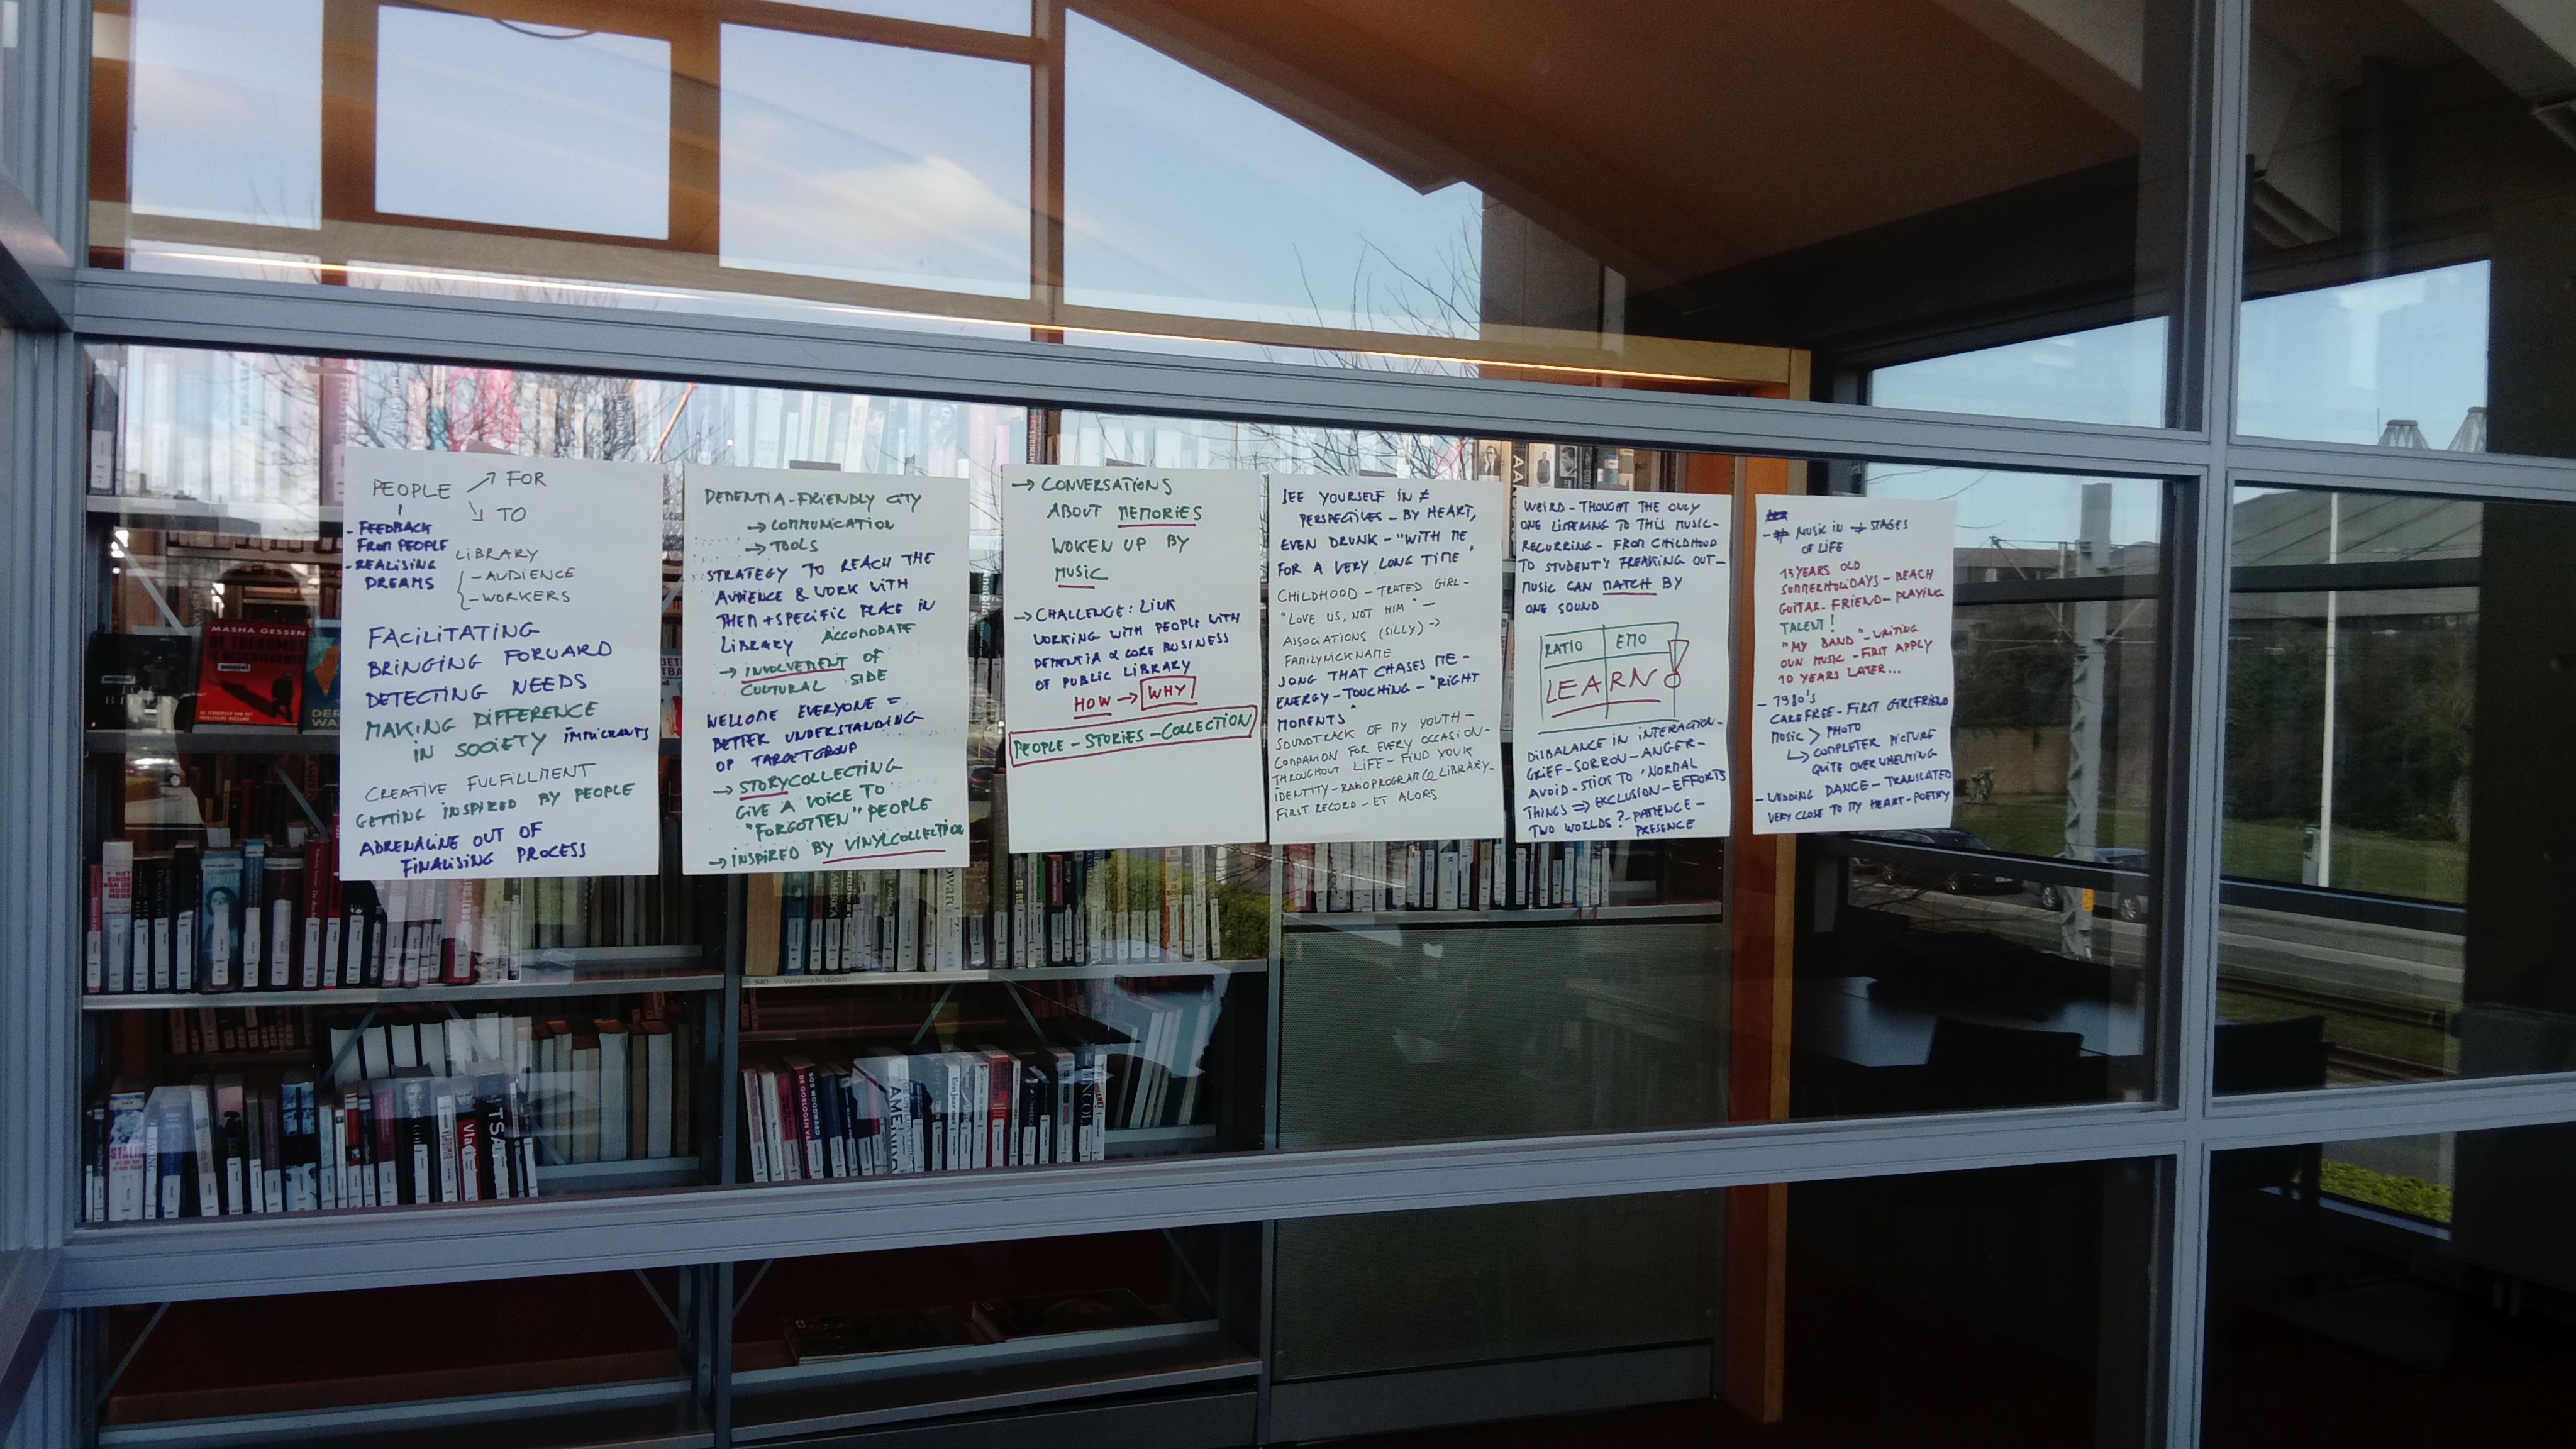 PEOPLE ↗ FOR
↘ TO
- FEEDBACK
FROM PEOPLE
- REALISING
DREAMS
LIBRARY
- AUDIENCE
- WORKERS
FACILITATING
BRINGING FORWARD
DETECTING NEEDS
MAKING DIFFERENCE
IN SOCIETY IMMIGRANTS
CREATIVE FULFILLMENT
GETTING INSPIRED BY PEOPLE
ADRENALINE OUT OF
FINALISING PROCESS
DEMENTIA-FRIENDLY CITY
→ COMMUNICATION
→ TOOLS
STRATEGY TO REACH THE
AUDIENCE & WORK WITH
THEM + SPECIFIC PLACE IN
LIBRARY ACCOMODATE
→ INVOLVEMENT OF
CULTURAL SIDE
WELCOME EVERYONE =
BETTER UNDERSTANDING
OF TARGETGROUP
→ STORYCOLLECTING
GIVE A VOICE TO
"FORGOTTEN" PEOPLE
→ INSPIRED BY VINYLCOLLECTION
→ CONVERSATIONS
ABOUT MEMORIES
WOKEN UP BY
MUSIC
→ CHALLENGE: LINK
WORKING WITH PEOPLE WITH
DEMENTIA & CORE BUSINESS
OF PUBLIC LIBRARY
HOW → WHY
PEOPLE - STORIES - COLLECTION
SEE YOURSELF IN ≠
PERSPECTIVES - BY HEART,
EVEN DRUNK - "WITH ME
FOR A VERY LONG TIME"
CHILDHOOD - TRATED GIRL -
"LOVE US, NOT HIM" -
ASSOCIATIONS (SILLY) →
FAMILYNICKNAME
SONG THAT CHASES ME -
ENERGY - TOUCHING - "RIGHT
MOMENTS"
SOUNDTRACK OF MY YOUTH -
COMPANION FOR EVERY OCCASION -
THROUGHOUT LIFE - FIND YOUR
IDENTITY - RADIOPROGRAM @ LIBRARY -
FIRST RECORD - ET ALORS
WEIRD - THOUGHT THE ONLY
ONE LISTENING TO THIS MUSIC -
RECURRING - FROM CHILDHOOD
TO STUDENT'S FREAKING OUT -
MUSIC CAN MATCH BY
ONE SOUND
RATIO EMO
LEARN!
DISBALANCE IN INTERACTION -
GRIEF - SORROW - ANGER -
AVOID - STICK TO 'NORMAL
THINGS ⇒ EXCLUSION - EFFORTS
TWO WORLDS? - PATIENCE -
PRESENCE
- # MUSIC IN ≠ STAGES
OF LIFE
15 YEARS OLD
SUMMERHOLIDAYS - BEACH
GUITAR - FRIEND - PLAYING
TALENT!
"MY BAND" - WRITING
OWN MUSIC - FIRST APPLY
10 YEARS LATER...
- 1980'S
CAREFREE - FIRST GIRLFRIEND
MUSIC > PHOTO
↳ COMPLETER PICTURE
QUITE OVERWHELMING
- WEDDING DANCE - TRANSLATED
VERY CLOSE TO MY HEART - POETRY
MASHA GESSEN
DE TOEKOMST
940 Verenigde Staten
STALIN
TSA
AMERIKA
LINCOLN